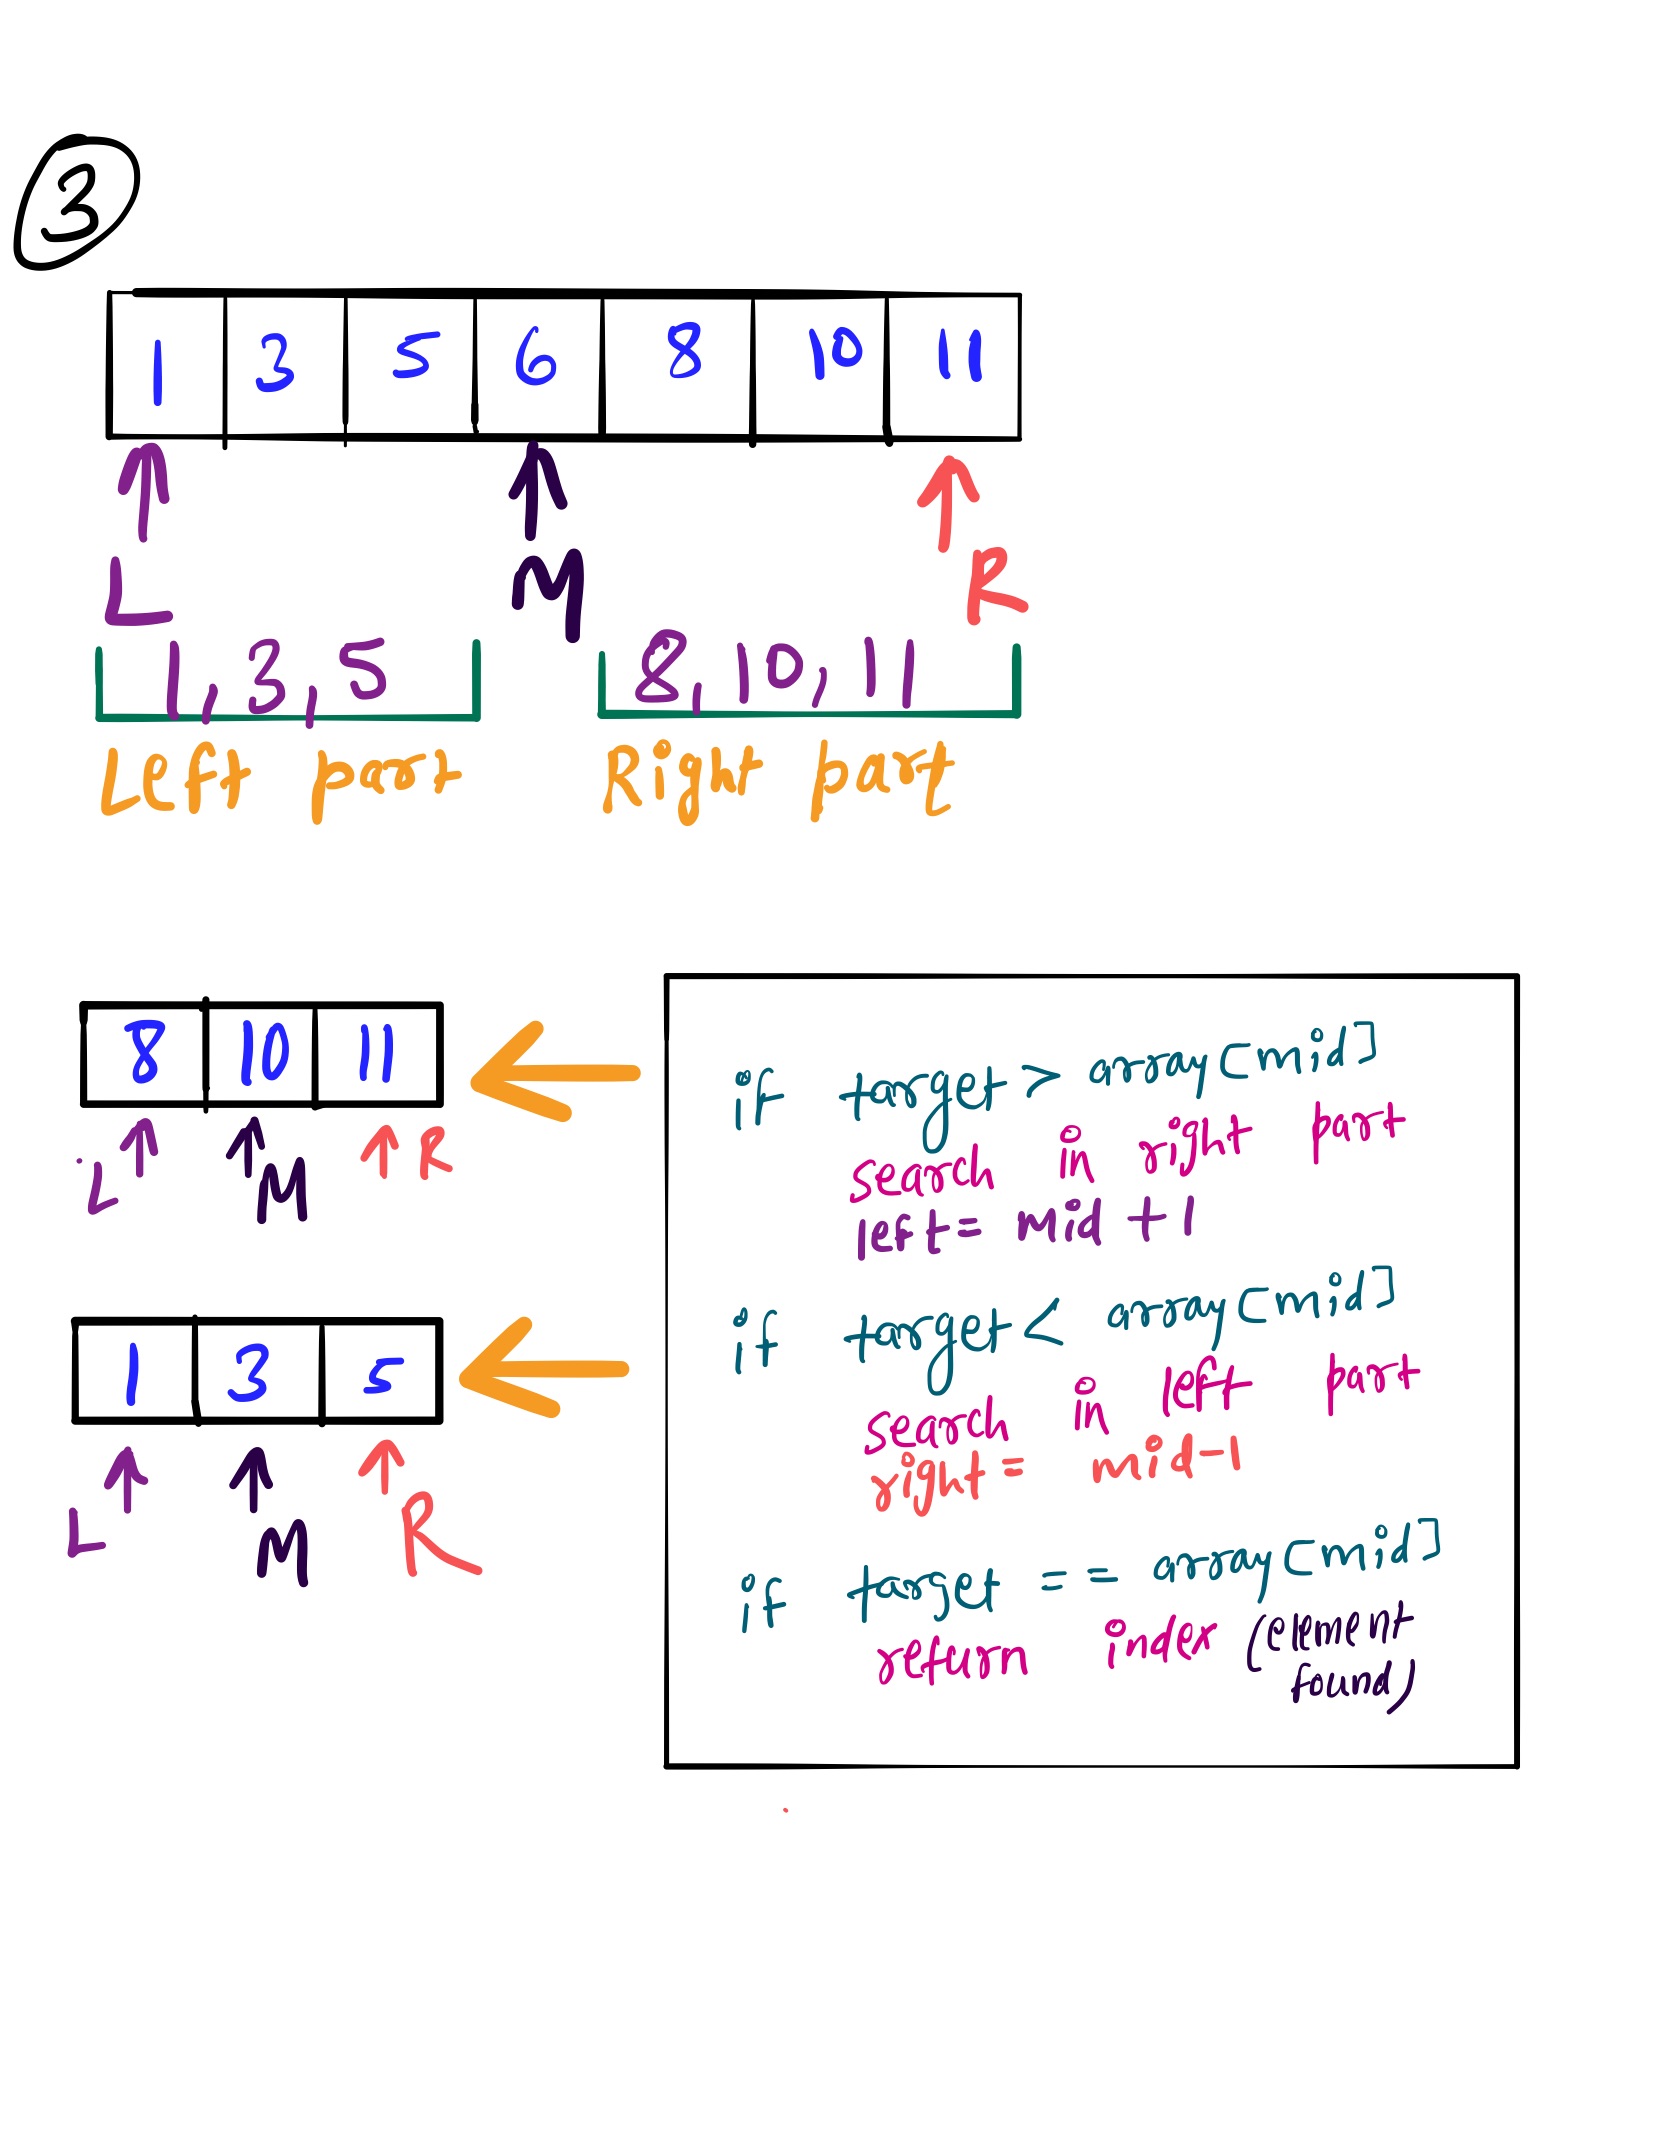 3
1 3 5 6 8 10 11
L M R
1, 3, 5 8, 10, 11
Left part Right part
8 10 11
L M R
1 3 5
L M R
if target > array[mid]
search in right part
left = mid + 1
if target < array[mid]
search in left part
right = mid-1
if target == array[mid]
return index (element
found)